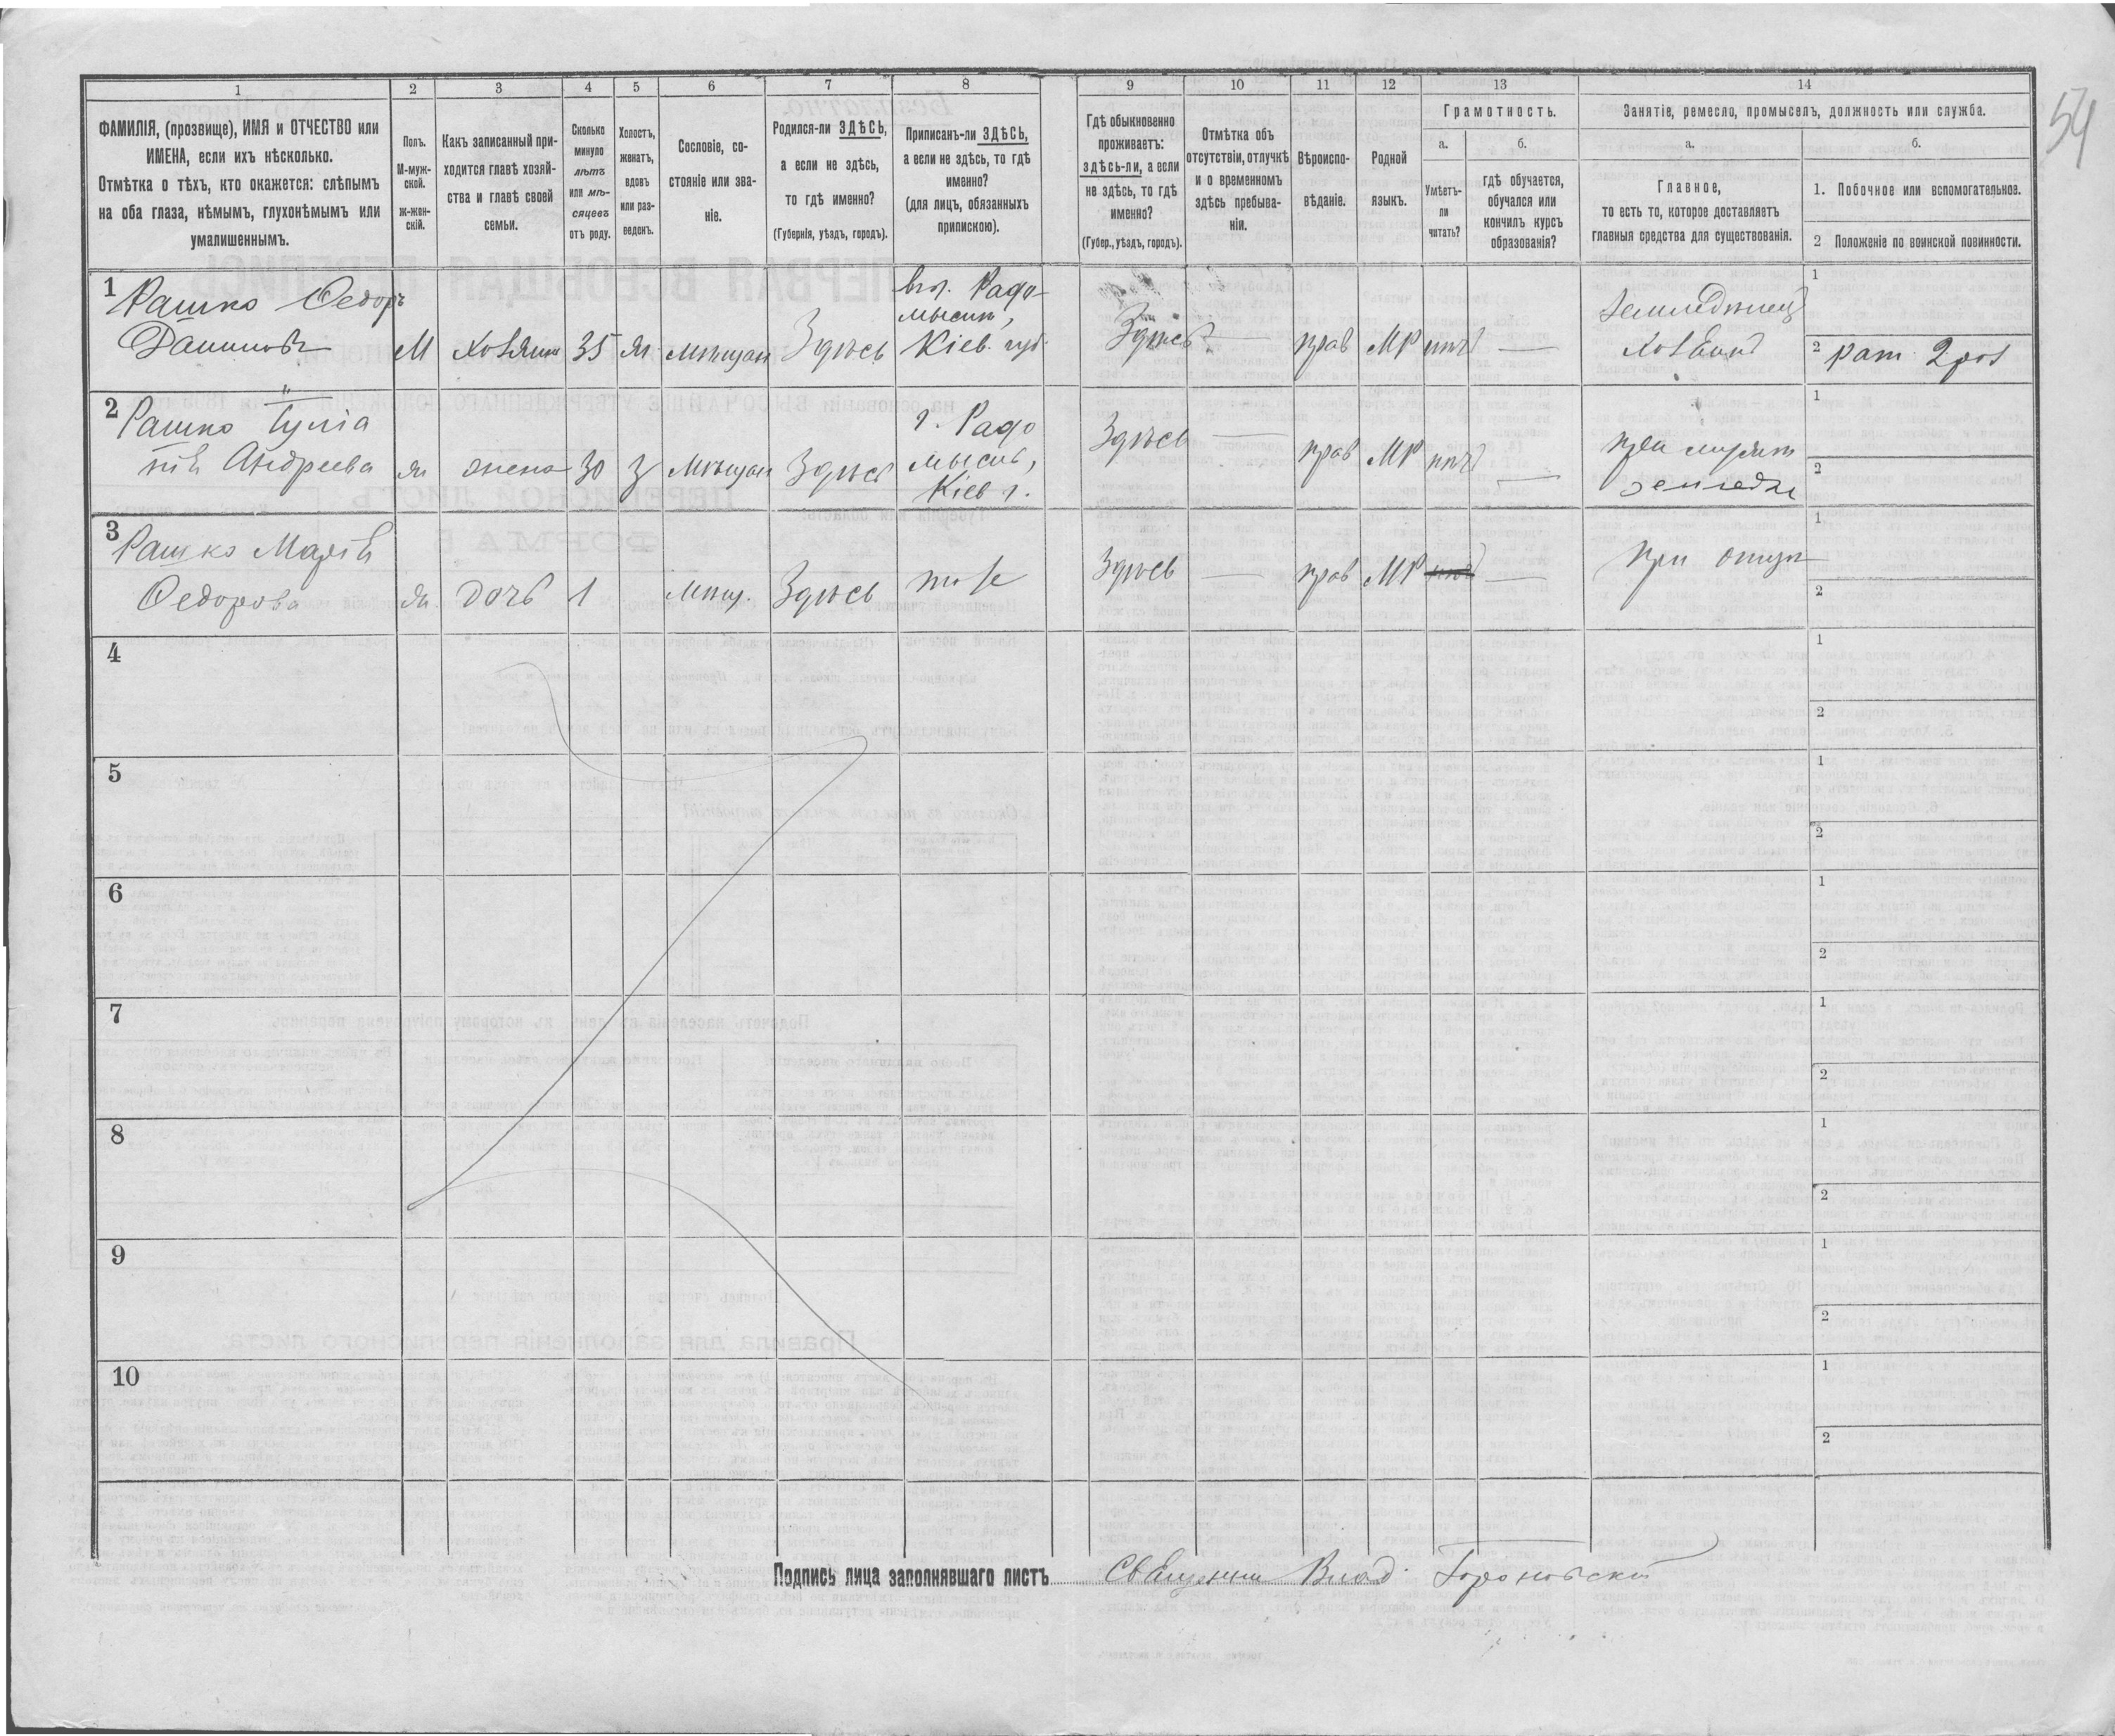 54
1
2
3
4
5
6
7
8
9
10
11
12
13
14
ФАМИЛІЯ, (прозвище), ИМЯ и ОТЧЕСТВО или
ИМЕНА, если ихъ нѣсколько.
Отмѣтка о тѣхъ, кто окажется: слѣпымъ
на оба глаза, нѣмымъ, глухонѣмымъ или
умалишеннымъ.
Полъ.
М-муж-
ской.
ж-жен-
скій.
Какъ записанный при-
ходится главѣ хозяй-
ства и главѣ своей
семьи.
Сколько
минуло
лѣтъ
или мѣ-
сяцевъ
отъ роду.
Холостъ,
женатъ,
вдовъ
или раз-
веденъ.
Сословіе, со-
стояніе или зва-
ніе.
Родился-ли ЗДѢСЬ,
а если не здѣсь,
то гдѣ именно?
(Губернія, уѣздъ, городъ).
Приписанъ-ли ЗДѢСЬ,
а если не здѣсь, то гдѣ
именно?
(для лицъ, обязанныхъ
припискою).
Гдѣ обыкновенно
проживаетъ:
здѣсь-ли, а если
не здѣсь, то гдѣ
именно?
(Губер., уѣздъ, городъ).
Отмѣтка объ
отсутствіи, отлучкѣ
и о временномъ
здѣсь пребыва-
ніи.
Вѣроиспо-
вѣданіе.
Родной
языкъ.
Грамотность.
а.
Умѣетъ-
ли
читать?
б.
гдѣ обучается,
обучался или
кончилъ курсъ
образованія?
Занятіе, ремесло, промыселъ, должность или служба.
а.
Главное,
то есть то, которое доставляетъ
главныя средства для существованія.
б.
1. Побочное или вспомогательное.
2 Положеніе по воинской повинности.
1
Рашко Ѳедоръ
М
35
Здѣсь
Радо-
Кіев. губ.
Здѣсь
—
прав
МР
нѣтъ
—
1
2 рат. 2 раз
2
Рашко
Андреева
жена
30
З
Здѣсь
г. Радо
мысль,
Кіев г.
Здѣсь
—
прав
МР
нѣтъ
—
при
1
2
3
Рашко Марія
Ѳедорова
дочь
1
мѣщ.
Здѣсь
Здѣсь
—
прав
МР
—
при отцѣ
1
2
4
1
2
5
1
2
6
1
2
7
1
2
8
1
2
9
1
2
10
1
2
Подпись лица заполнявшаго листъ Влад.